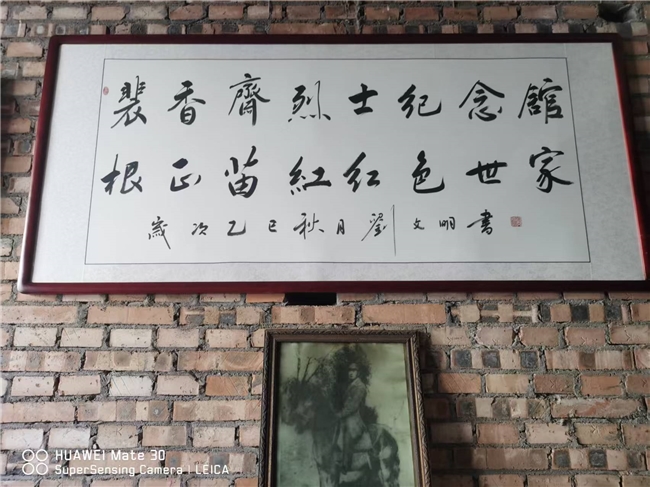 裴香齋烈士纪念館
根正苗紅红色世家
歲次乙巳秋月劉文明書
HUAWEI Mate 30
SuperSensing Camera | LEICA